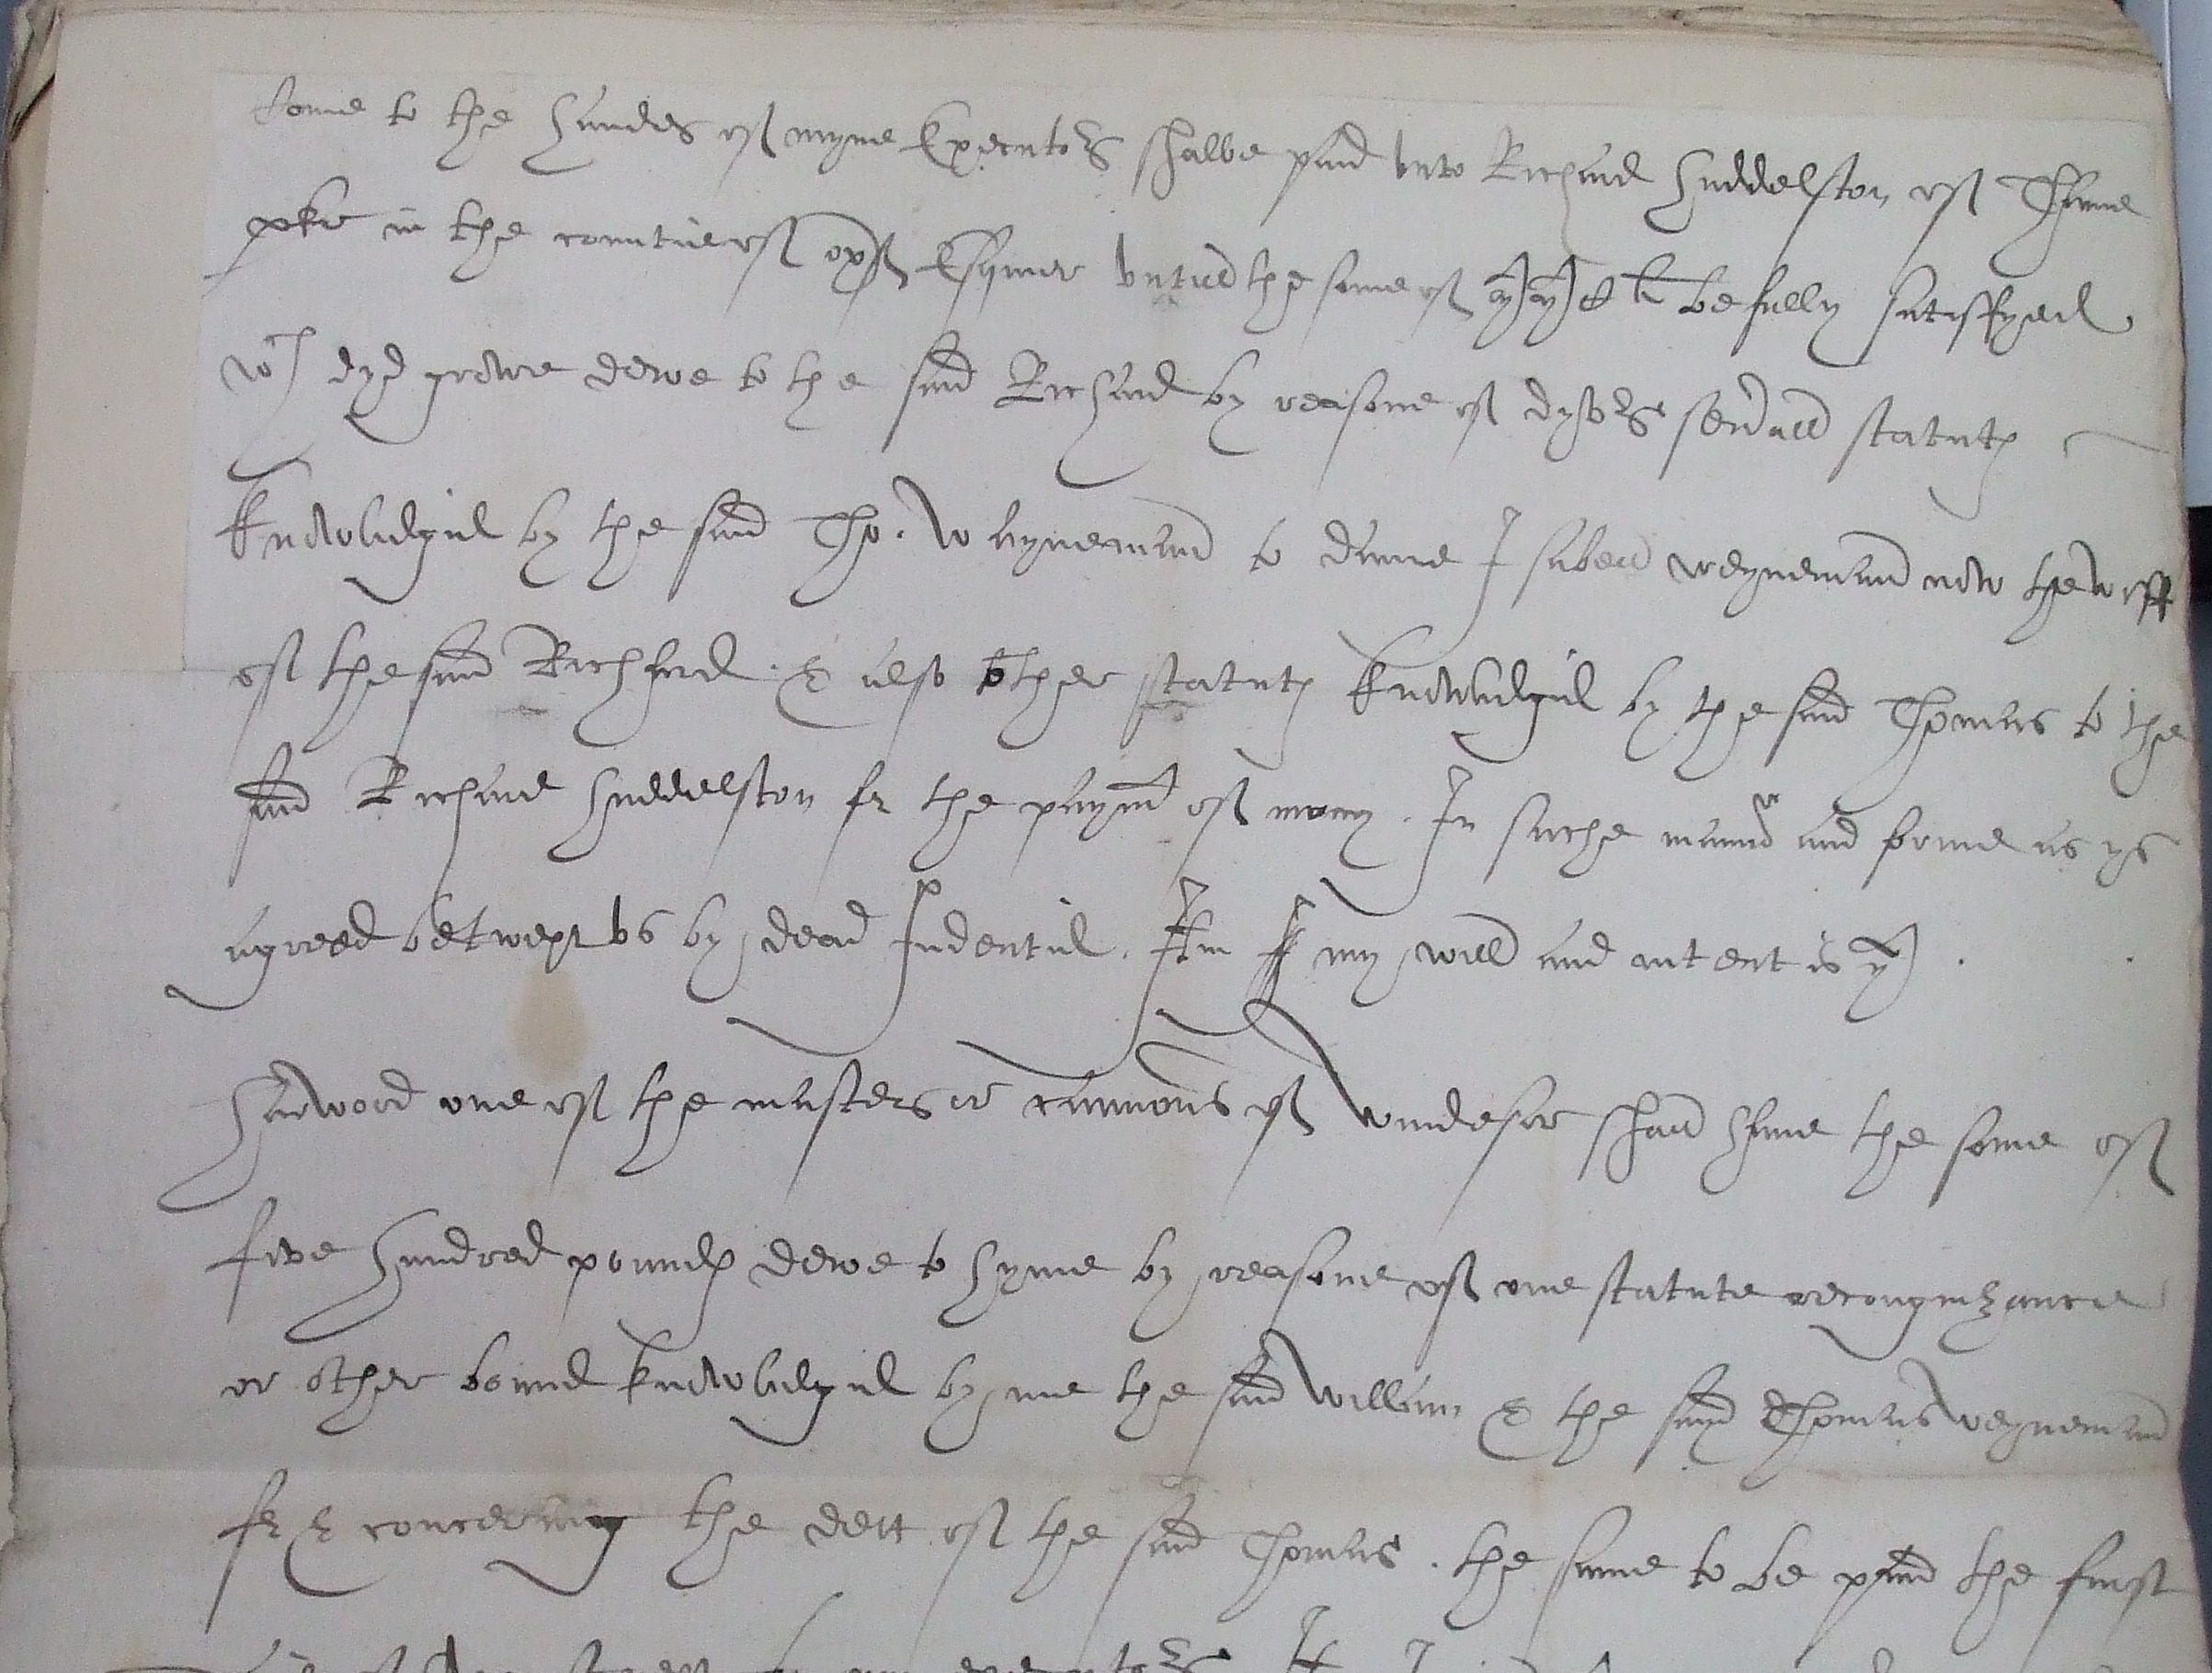 Come to the handes of myne Executors shalbe paid unto Richard Huddelston of Thame
pke in the countie of oxon Esquier untill the some of be fully satisfyed
wch dyd growe dewe to the said Richard by reasone of dyvrs severall statutes
knowledged by the said Tho. Waynemand to dame Isabell weynemand now the wyff
of the said Richard. & also other statutes knowledged by the said Thomas to the
said Richard Huddelston for the paymt of mony. In suche manner and forme as ys
agreed betwext us by dead Indentid. Itm my will and entent is yt .
Harwood one of the masters or cannons of Windesor shall have the some of
five hundred poundes dewe to hyme by reasone of one statute recongnizance
or other bound knowledged by me the said William & the said Thomas Weynemand
for & concerning the dett of the said Thomas. the same to be paid the first